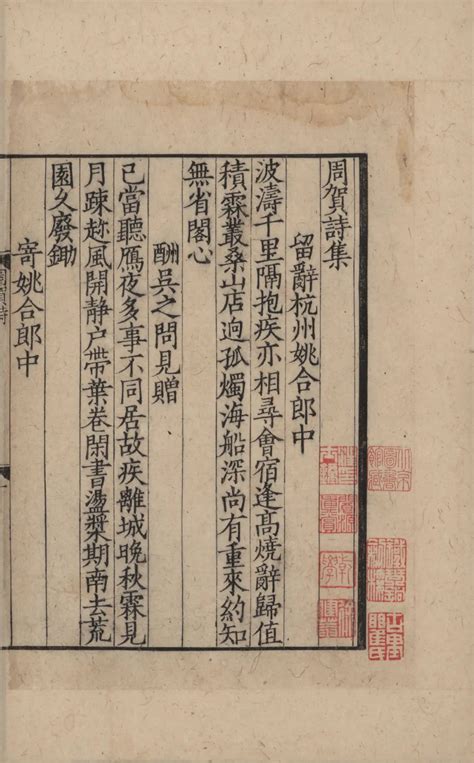 周賀詩集
留辭杭州姚合郎中
波濤千里隔抱疾亦相尋會宿逢髙燒辭歸值
積霖叢桑山店逈孤燭海船深尚有重來約知
無省閣心
酬吳之問見贈
已當聽鴈夜多事不同居故疾離城晚秋霖見
月踈趂風開静户帶葉卷閑書盪槳期南去荒
園久廢鋤
寄姚合郎中